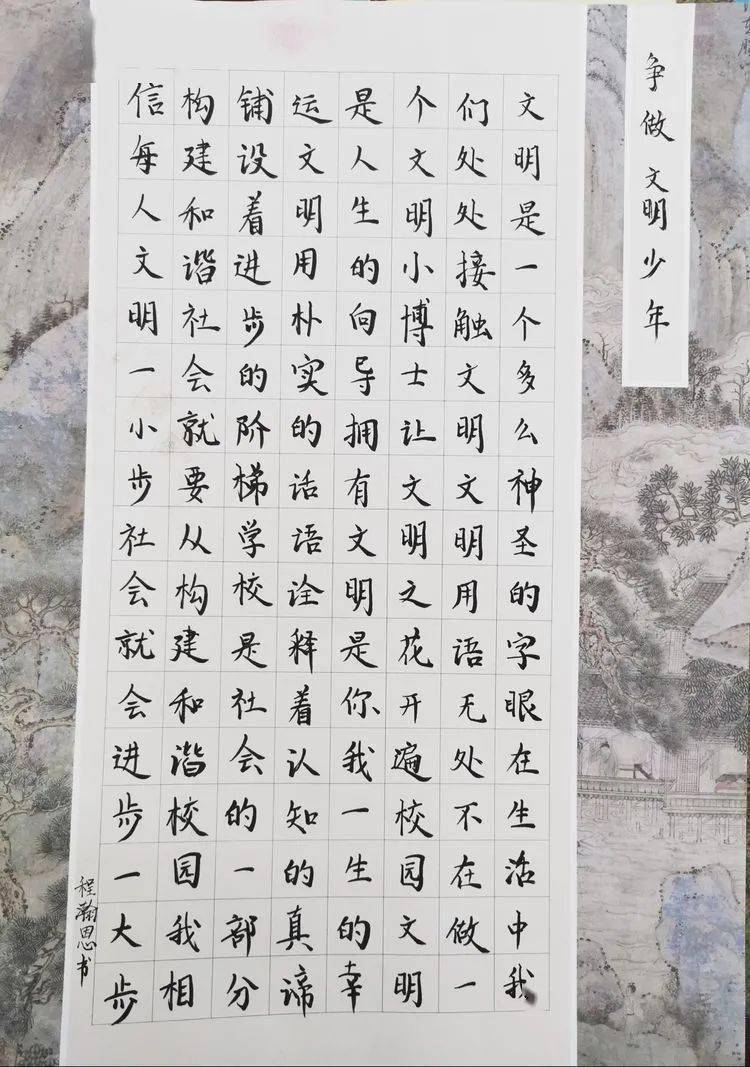 争做文明少年
文明是一个多么神圣的字眼在生活中我
们处处接触文明文明用语无处不在做一
个文明小博士让文明之花开遍校园文明
是人生的向导拥有文明是你我一生的幸
运文明用朴实的话语诠释着认知的真谛
铺设着进步的阶梯学校是社会的一部分
构建和谐社会就要从构建和谐校园我相
信每人文明一小步社会就会进步一大步
程瀚思书